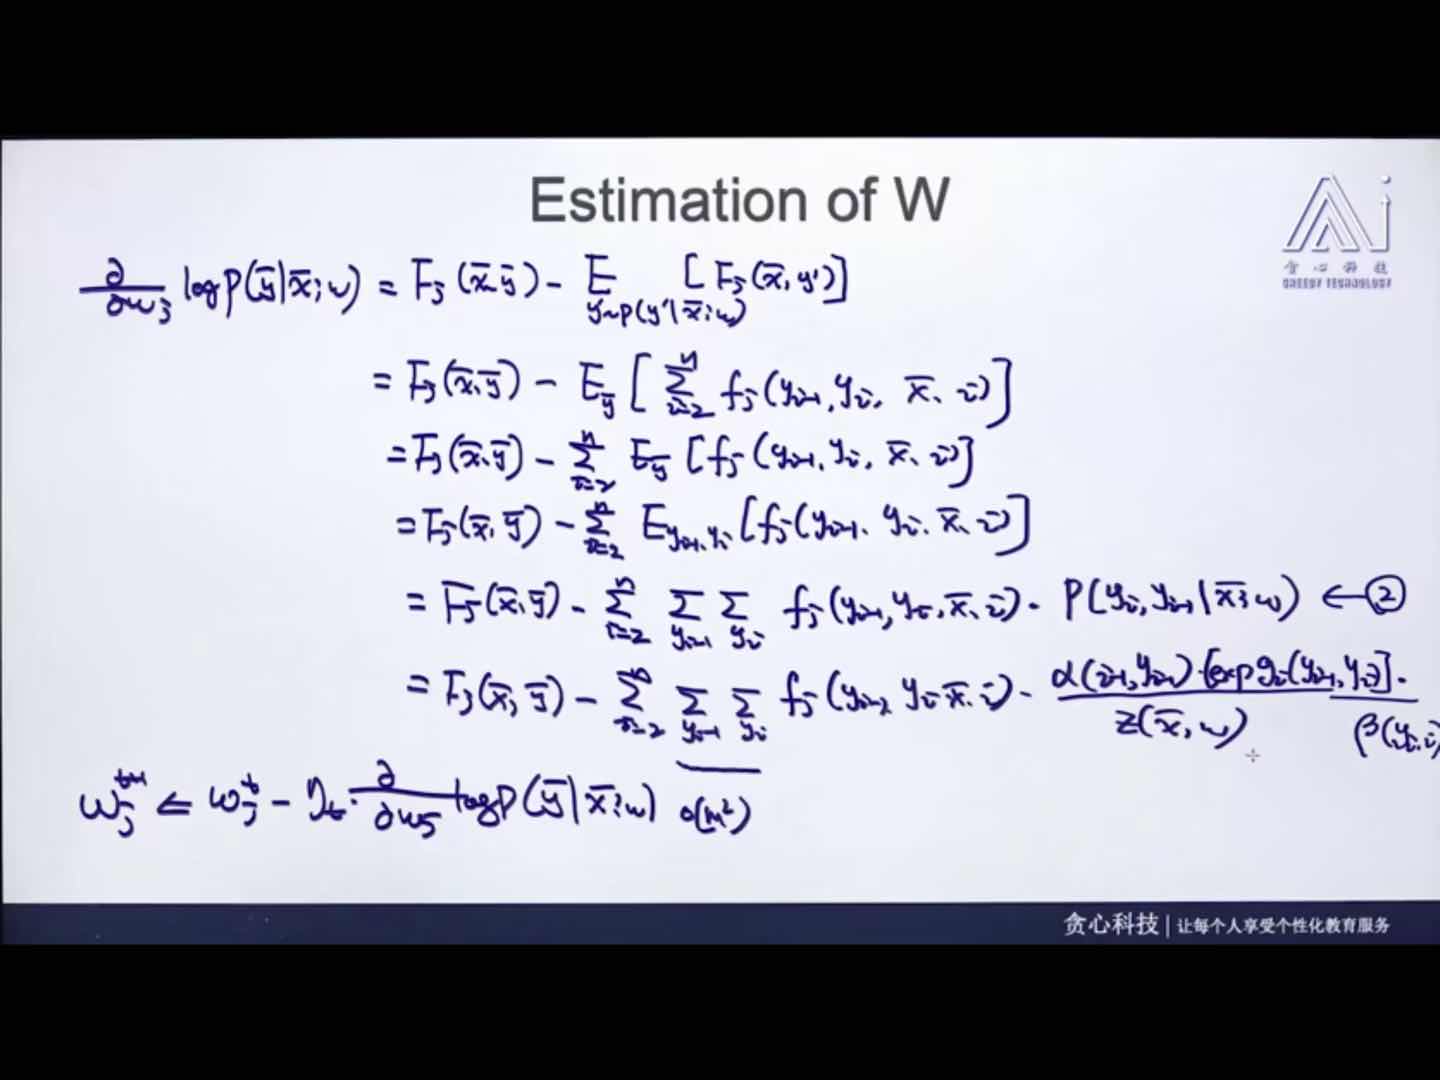 Estimation of W
Ai
贪心科技
GREEDY TECHNOLOGY
∂/∂w_j log p(ȳ|x̄;w) = F_j(x̄,ȳ) - E_{y'~p(y'|x̄;w)} [F_j(x̄,y')]
= F_j(x̄,ȳ) - E_ȳ [∑_{i=2}^n f_j(y_{i-1}, y_i, x̄, i)]
= F_j(x̄,ȳ) - ∑_{i=2}^n E_ȳ [f_j(y_{i-1}, y_i, x̄, i)]
= F_j(x̄,ȳ) - ∑_{i=2}^n E_{y_{i-1},y_i} [f_j(y_{i-1}, y_i, x̄, i)]
= F_j(x̄,ȳ) - ∑_{i=2}^n ∑_{y_{i-1}} ∑_{y_i} f_j(y_{i-1}, y_i, x̄, i) · P(y_i, y_{i-1}|x̄;w) ← ②
= F_j(x̄,ȳ) - ∑_{i=2}^n ∑_{y_{i-1}} ∑_{y_i} f_j(y_{i-1}, y_i, x̄, i) · α(i-1, y_{i-1}) · [exp g_i(y_{i-1}, y_i)] · β(y_i, i) / Z(x̄,w)
w_j^{t+1} ⇐ w_j^t - η_t · ∂/∂w_j log p(ȳ|x̄;w) o(m²)
贪心科技 | 让每个人享受个性化教育服务